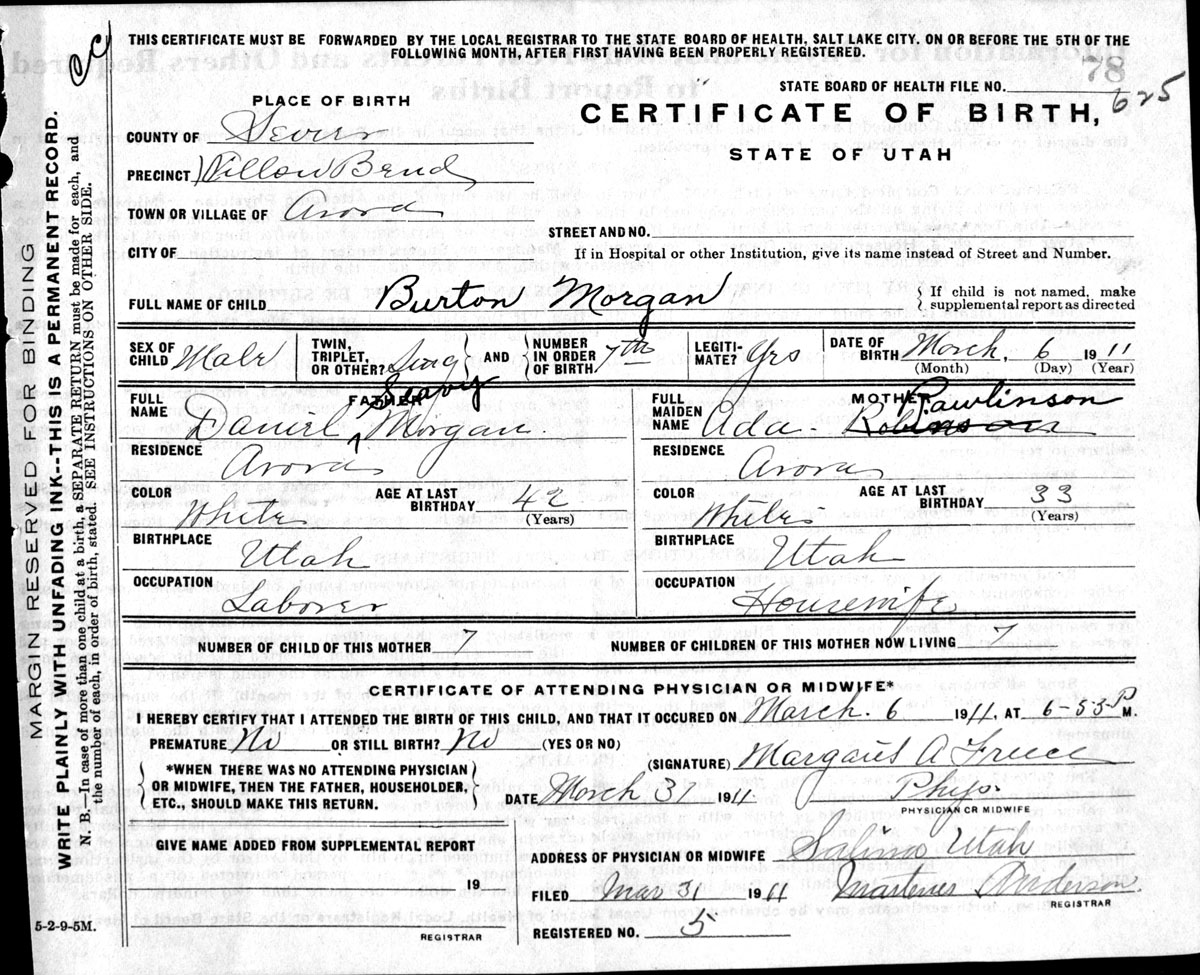 THIS CERTIFICATE MUST BE FORWARDED BY THE LOCAL REGISTRAR TO THE STATE BOARD OF HEALTH, SALT LAKE CITY, ON OR BEFORE THE 5TH OF THE
FOLLOWING MONTH, AFTER FIRST HAVING BEEN PROPERLY REGISTERED.
78
STATE BOARD OF HEALTH FILE NO.
625
PLACE OF BIRTH
CERTIFICATE OF BIRTH,
STATE OF UTAH
COUNTY OF Sevier
PRECINCT Willow Bend
TOWN OR VILLAGE OF Arora
STREET AND NO.
CITY OF
If in Hospital or other Institution, give its name instead of Street and Number.
FULL NAME OF CHILD Burton Morgan
{ If child is not named, make
supplemental report as directed
SEX OF CHILD Male
TWIN, TRIPLET, OR OTHER? Sing
AND
NUMBER IN ORDER OF BIRTH 7th
LEGITI-MATE? Yes
DATE OF BIRTH March, 6 1911
(Month) (Day) (Year)
FATHER
FULL NAME Daniel Seavy Morgan
RESIDENCE
Arora
COLOR White
AGE AT LAST BIRTHDAY 42
(Years)
BIRTHPLACE
Utah
OCCUPATION
Laborer
MOTHER
FULL MAIDEN NAME Ada Robinson Rawlinson
RESIDENCE
Arora
COLOR White
AGE AT LAST BIRTHDAY 33
(Years)
BIRTHPLACE
Utah
OCCUPATION
Housewife
NUMBER OF CHILD OF THIS MOTHER 7 NUMBER OF CHILDREN OF THIS MOTHER NOW LIVING 7
CERTIFICATE OF ATTENDING PHYSICIAN OR MIDWIFE*
I HEREBY CERTIFY THAT I ATTENDED THE BIRTH OF THIS CHILD, AND THAT IT OCCURED ON March. 6 1911, AT 6-55 P M.
PREMATURE No OR STILL BIRTH? No (YES OR NO)
(SIGNATURE) Margaret A
*WHEN THERE WAS NO ATTENDING PHYSICIAN
OR MIDWIFE, THEN THE FATHER, HOUSEHOLDER,
ETC., SHOULD MAKE THIS RETURN.
DATE March 31 1911
Phys.
PHYSICIAN OR MIDWIFE
GIVE NAME ADDED FROM SUPPLEMENTAL REPORT
19
REGISTRAR
ADDRESS OF PHYSICIAN OR MIDWIFE Salina Utah
FILED Mar 31 1911 Anderson
REGISTRAR
REGISTERED NO. 5
5-2-9-5M.
MARGIN RESERVED FOR BINDING
WRITE PLAINLY WITH UNFADING INK--THIS IS A PERMANENT RECORD.
N. B.--In case of more than one child at a birth, a SEPARATE RETURN must be made for each, and
the number of each, in order of birth, stated. SEE INSTRUCTIONS ON OTHER SIDE.